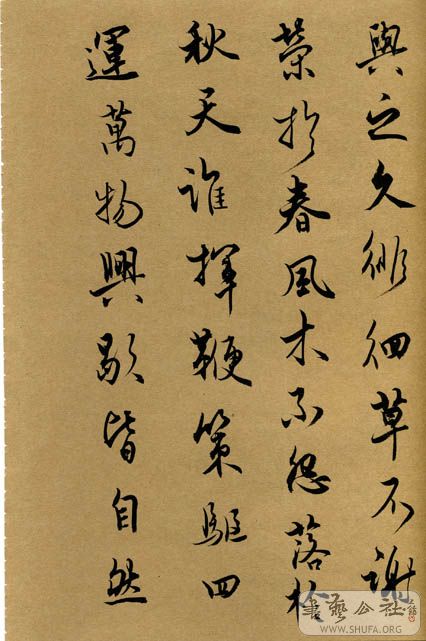 與之久徘徊草不謝
榮於春風木不怨落於
秋天誰揮鞭策驅四
運萬物興歇皆自然
書藝公社
WWW.SHUFA.ORG